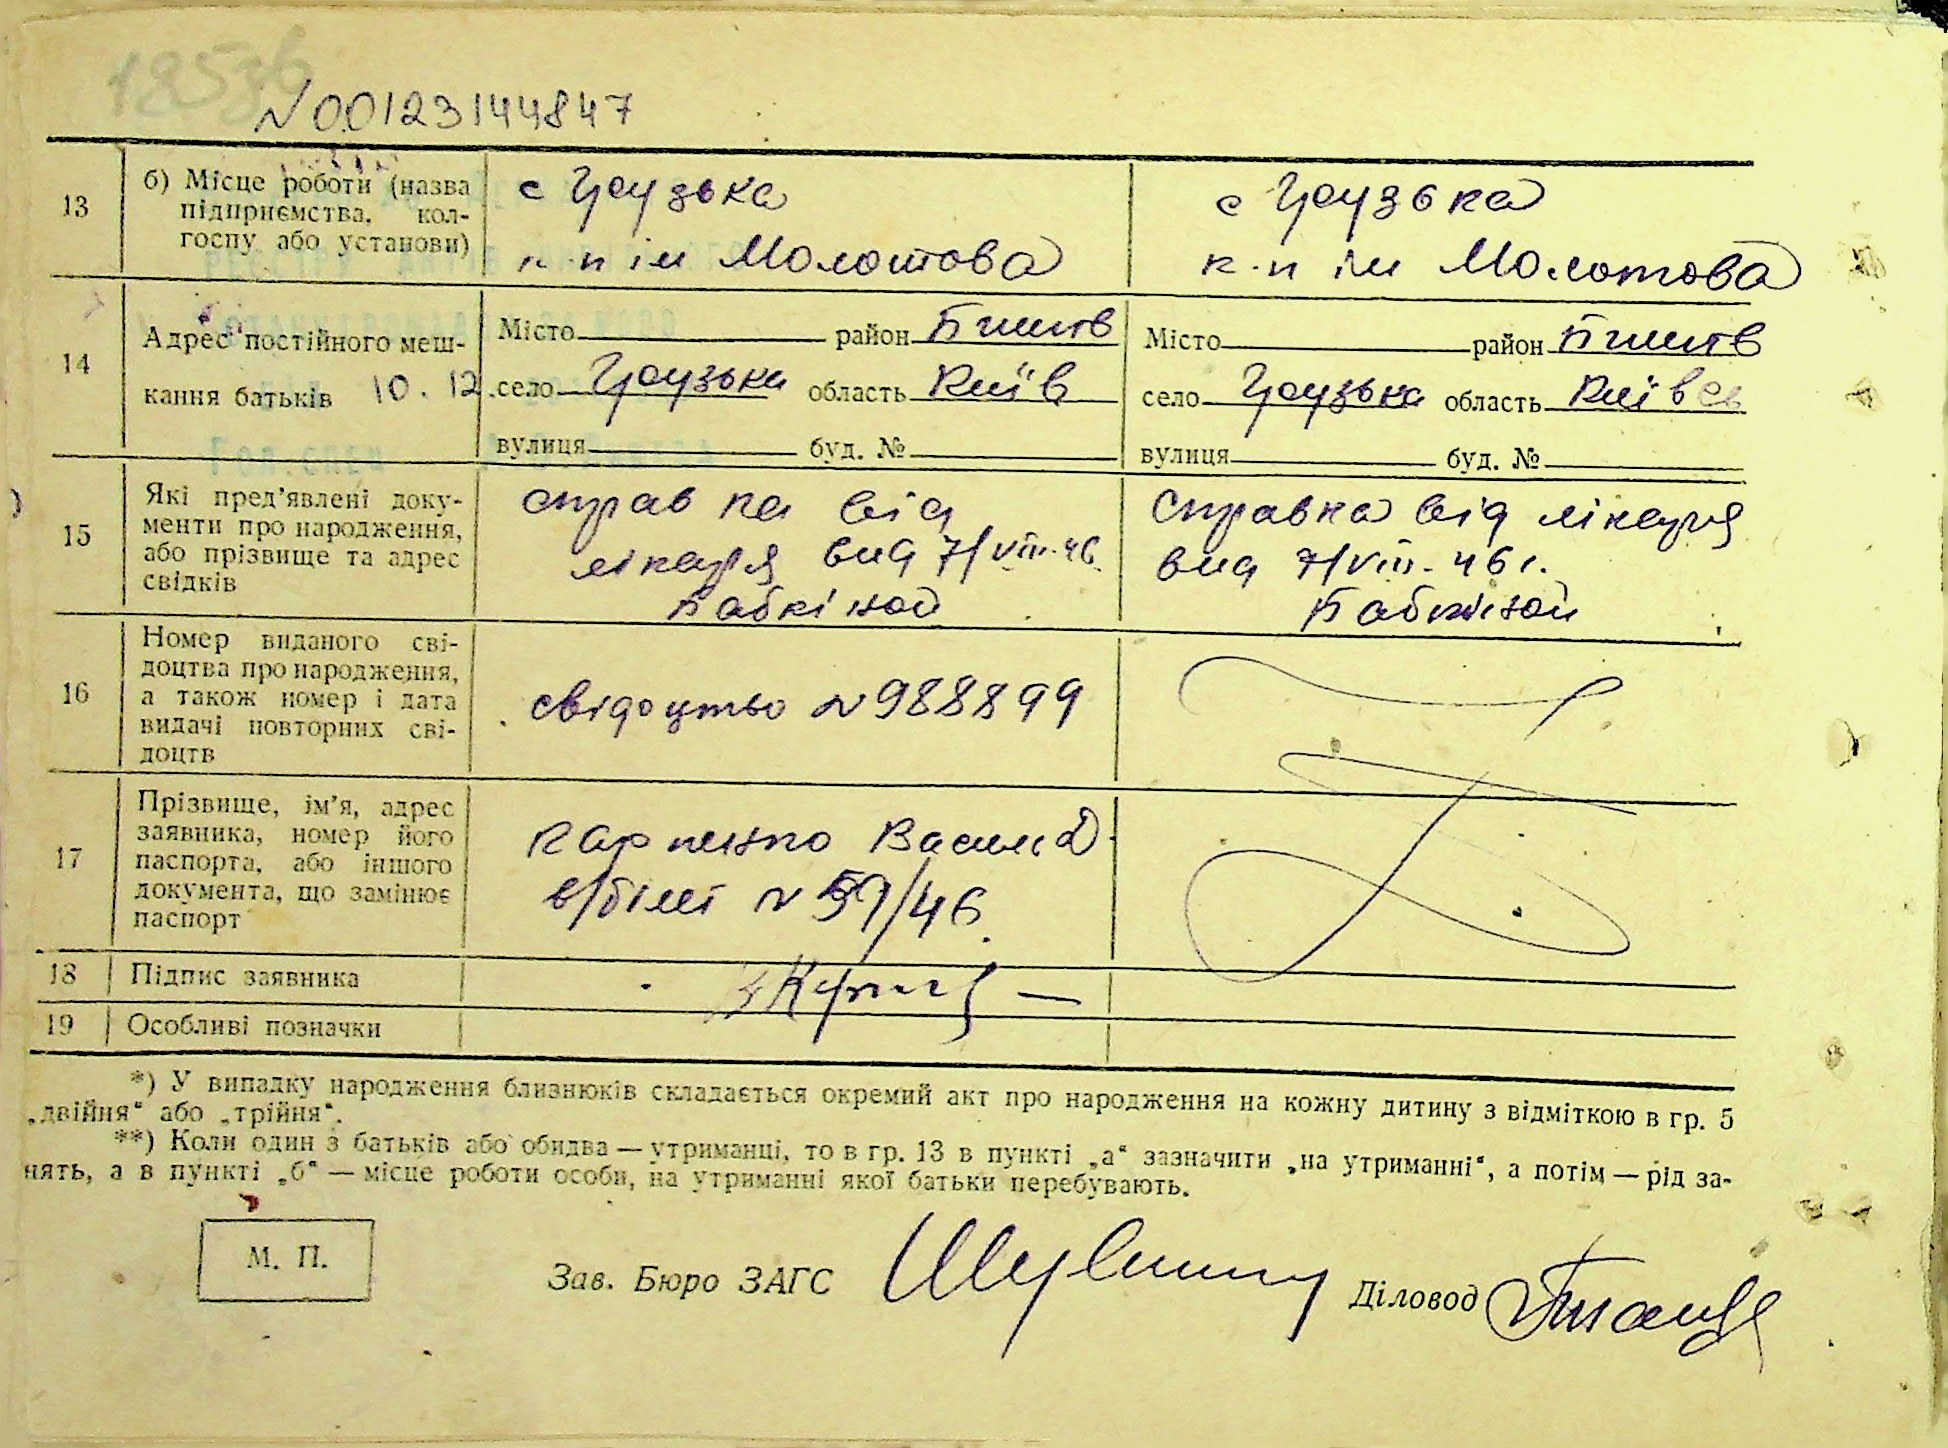 N00123144847
13
б) Місце роботи (назва
підприємства, кол-
госпу або установи)
с Грузька
к-п ім Молотова
с Грузька
к-п ім Молотова
14
Адрес постійного меш-
кання батьків 10.12.
Місто район
село Грузька область Київ
вулиця буд. №
Місто район
село Грузька область Київсь
вулиця буд. №
15
Які пред'явлені доку-
менти про народження,
або прізвище та адрес
свідків
справка від
лікаря вид 7/VIII-46
Бабкіной
справка від лікаря
вид 7/VIII-46 г.
Бабкіной
16
Номер виданого сві-
доцтва про народження,
а також номер і дата
видачі повторних сві-
доцтв
свідоцтво N 988899
17
Прізвище, ім'я, адрес
заявника, номер його
паспорта, або іншого
документа, що замінює
паспорт
Карпенко Василь
в/білет N 59/46
18
Підпис заявника
19
Особливі позначки
*) У випадку народження близнюків складається окремий акт про народження на кожну дитину з відміткою в гр. 5
„двійня“ або „трійня“.
**) Коли один з батьків або обидва — утриманці, то в гр. 13 в пункті „а“ зазначити „на утриманні“, а потім — рід за-
нять, а в пункті „б“ — місце роботи особи, на утриманні якої батьки перебувають.
М. П.
Зав. Бюро ЗАГС
Діловод